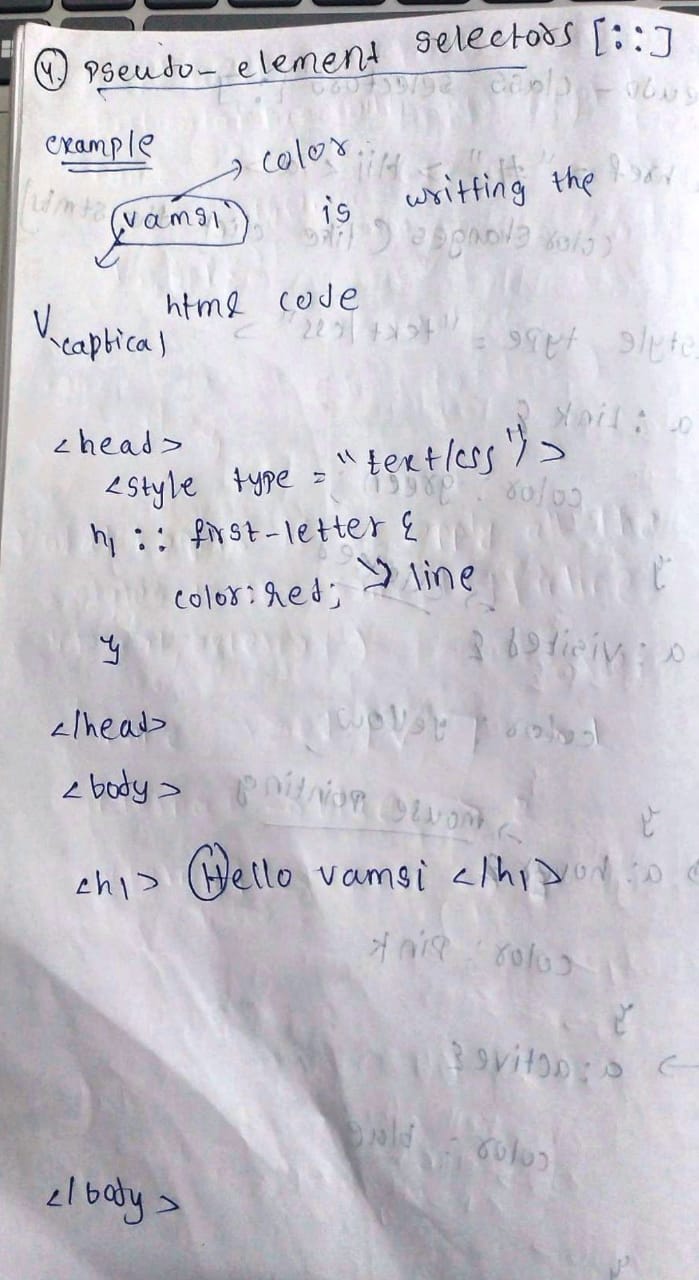 4. pseudo-element selectors [::]
example
color
vamsi is writting the
html code
V captical
<head>
<style type = "text/css">
h1 :: first-letter {
color: red; line
}
</head>
<body>
<h1> Hello vamsi </h1>
</body>